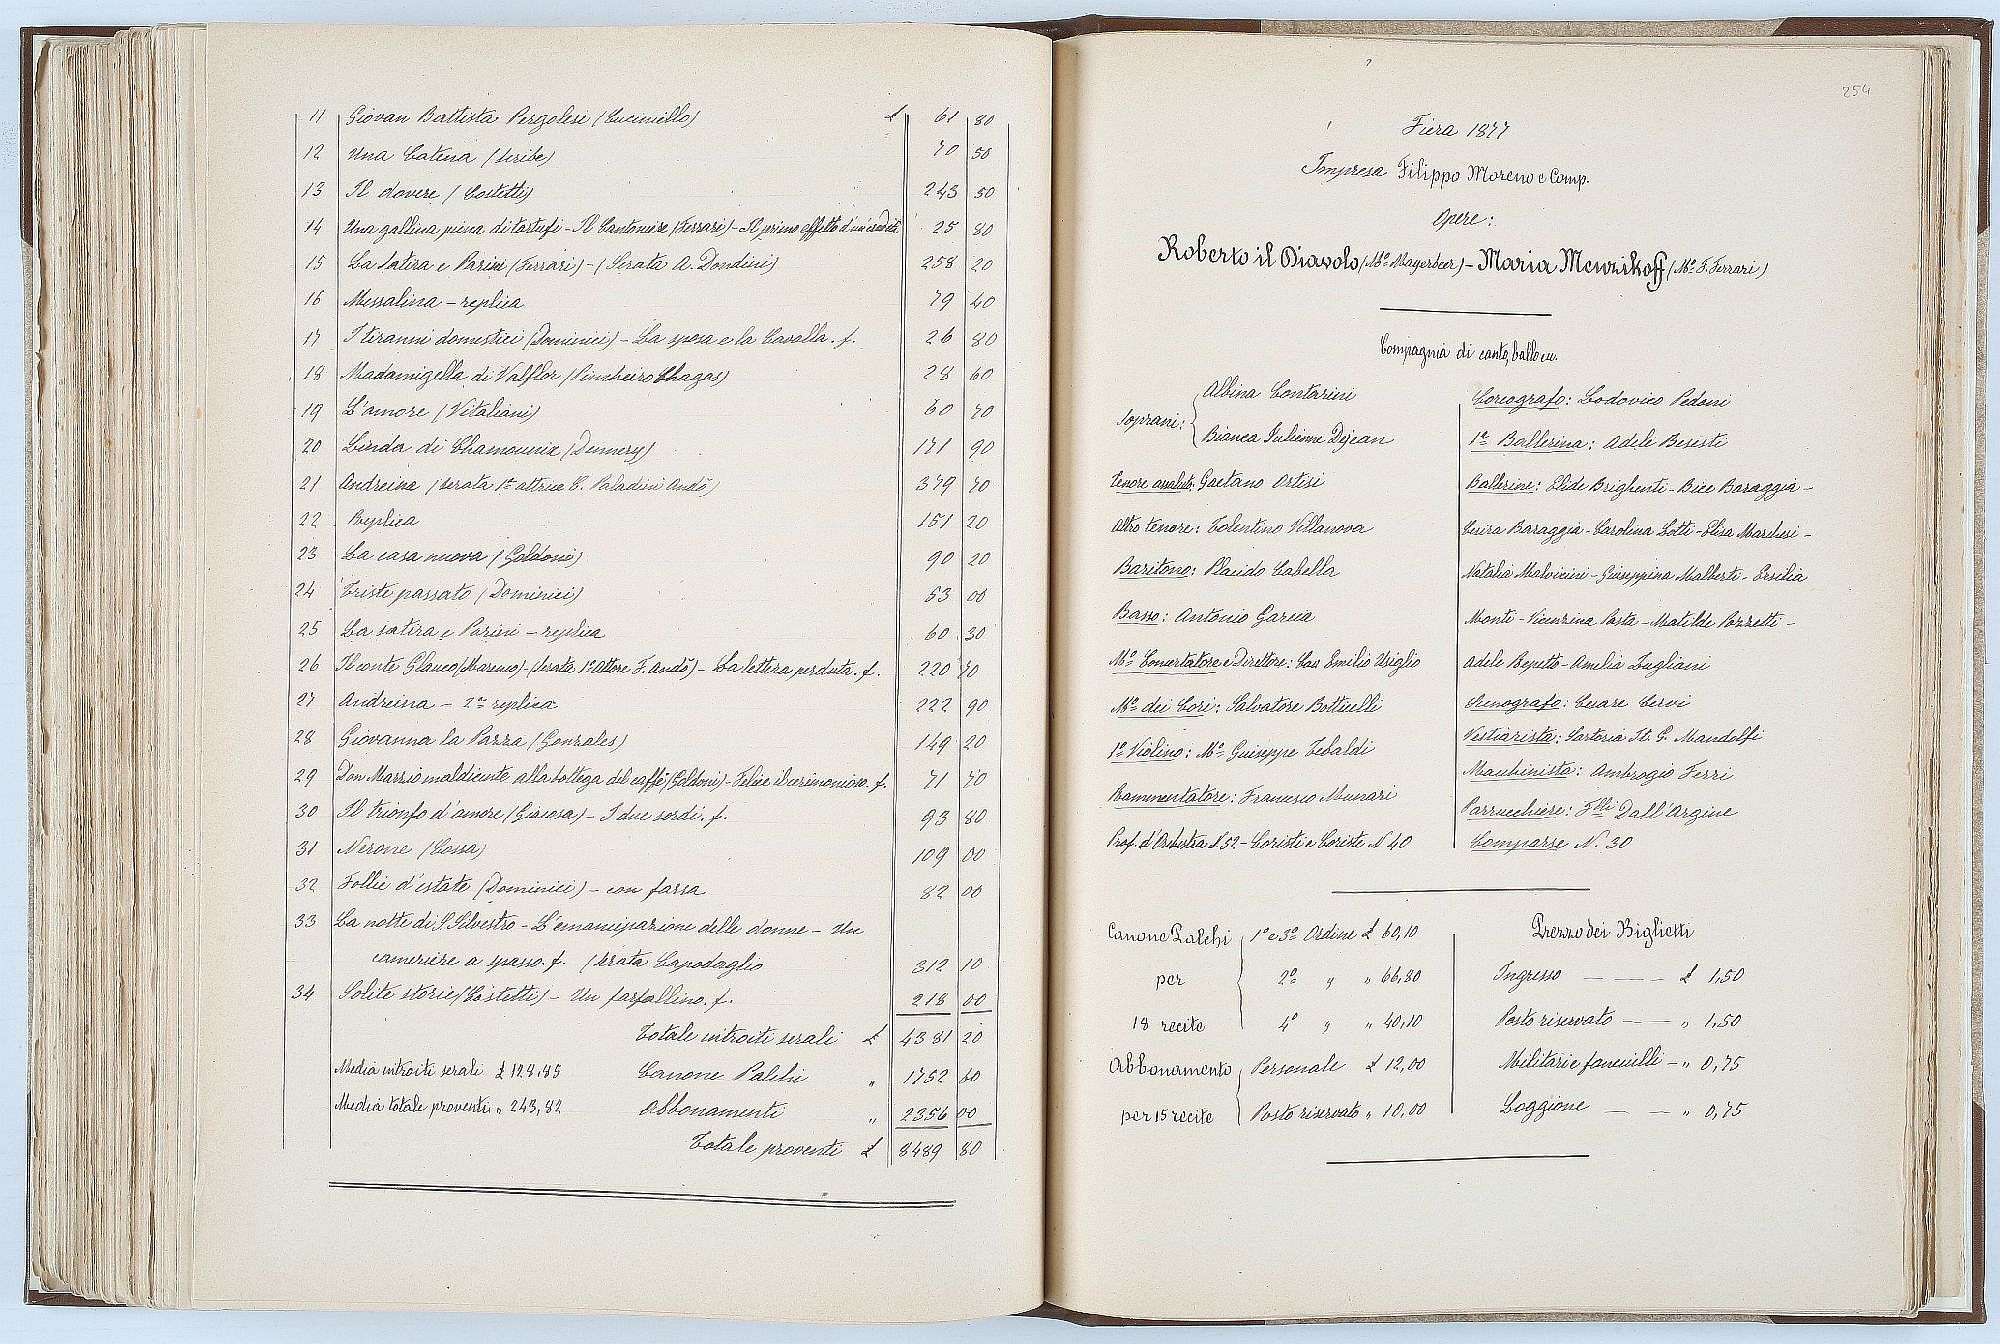 11 Giovan Battista Pergolesi (Cuciniello) £ 61 80
12 Una Catena (Scribe) 70 50
13 Il dovere (Costetti) 243 50
14 Una gallina piena di tartufi - Il Cantoniere (Ferrari) - Il primo effetto d'un'eredità 25 80
15 La Satira e Parini (Ferrari) - (Serata A. Dondini) 258 20
16 Messalina - replica 79 40
17 I tiranni domestici (Dominici) - La sposa e la Cavalla. f. 26 80
18 Madamigella di Valflor (Pinheiro Chagas) 28 60
19 L'amore (Vitaliani) 60 70
20 Linda di Chamounix (Dennery) 171 90
21 Andreina (serata 1ª attrice C. Paladini Andò) 379 70
22 Replica 151 20
23 La casa nuova (Goldoni) 90 20
24 Triste passato (Dominici) 53 00
25 La satira e Parini - replica 60 30
26 Il conte Glauco (Marenco) - (Serata 1º Attore F. Andò) - La lettera perduta. f. 220 70
27 Andreina - 2ª replica 222 90
28 Giovanna la Pazza (Gonzales) 149 20
29 Don Marzio maldicente alla bottega del caffè (Goldoni) - Felice il cerimonioso. f. 71 70
30 Il trionfo d'amore (Giacosa) - I due sordi. f. 93 80
31 Nerone (Cossa) 109 00
32 Follie d'estate (Dominici) - con farsa 82 00
33 La notte di S. Silvestro - L'emancipazione delle donne - Un
cameriere a spasso. f. (serata Capodaglio 312 10
34 Solite storie (Costetti) - Un farfallino. f. 218 00
Totale introiti serali £ 4381 20
Media introiti serali £ 128,85 Canone Palchi " 1752 60
Media totale proventi " 243,82 Abbonamenti " 2356 00
Totale proventi £ 8489 80
254
Fiera 1877
Impresa Filippo Moreno e Comp.
Opere:
Roberto il Diavolo (Mº Mayerbeer) - Maria Menzikoff (Mº F. Ferrari)
Compagnia di canto, ballo ecc.
Soprani: Albina Contarini
Bianca Julienne Dejean
Tenore assoluto: Gaetano Ortisi
Altro tenore: Tolentino Villanova
Baritono: Placido Cabella
Basso: Antonio Garcia
Mº Concertatore e Direttore: Cav Emilio Usiglio
Mº dei Cori: Salvatore Botticelli
1º Violino: Mº Giuseppe Tebaldi
Rammentatore: Francesco Munari
Prof. d'Orchestra N 52 - Coristi e Coriste N 40
Coreografo: Lodovico Pedoni
1ª Ballerina: Adele Besesti
Ballerine: Elide Brighenti - Bice Baraggia -
Cesira Baraggia - Carolina Lotti - Elisa Marchesi -
Natalia Malvicini - Giuseppina Malberti - Ersilia
Monti - Vicenzina Pasta - Matilde Pozzetti -
Adele Repetto - Amelia Tugliani
Scenografo: Cesare Cervi
Vestiarista: Sartoria It. G. Mandolfi
Macchinista: Ambrogio Ferri
Parrucchiere: Flli Dall'Argine
Comparse N. 30
Canone Palchi
per
18 recite
1º e 3º Ordine £ 60,10
2º " " 66,80
4º " " 40,10
Abbonamento
per 15 recite
Personale £ 12,00
Posto riservato " 10,00
Prezzo dei Biglietti
Ingresso £ 1,50
Posto riservato " 1,50
Militari e fanciulli - " 0,75
Loggione " 0,75